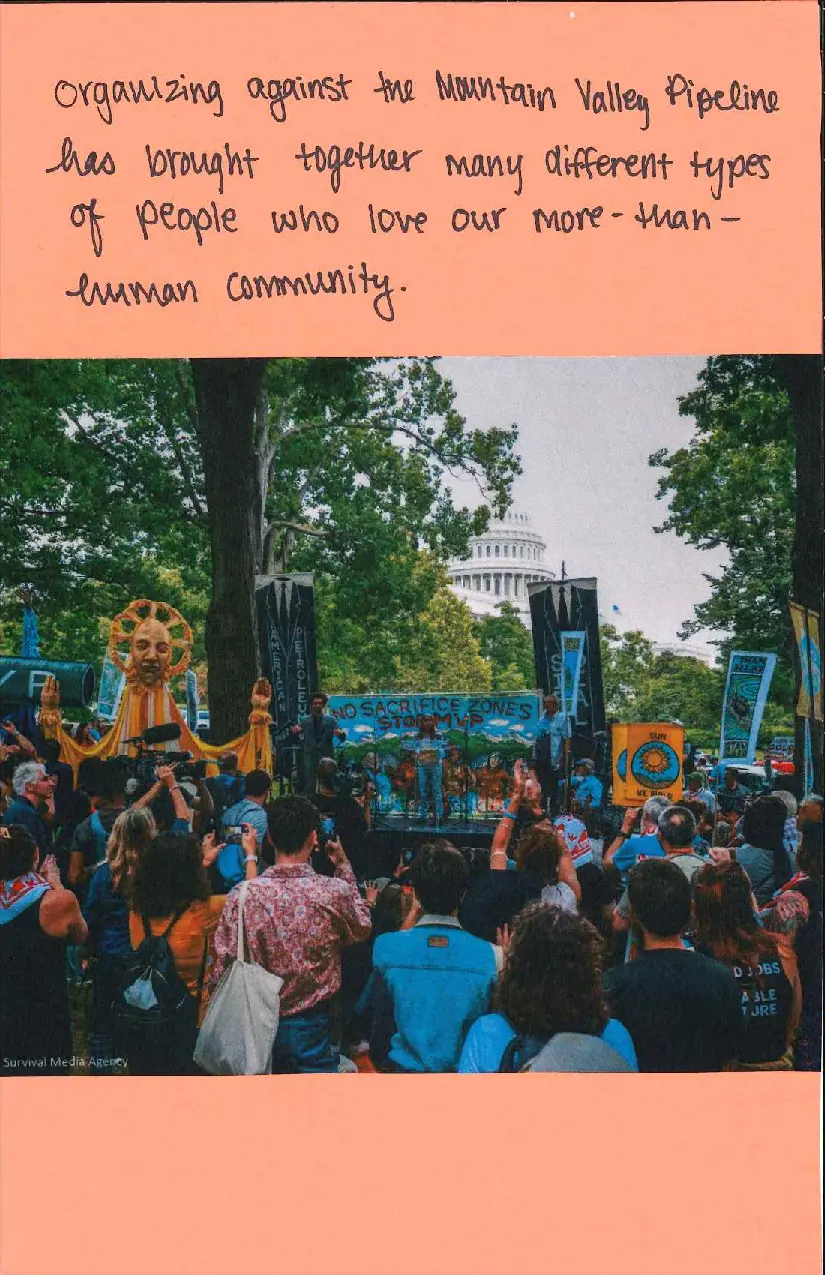 Organizing against the Mountain Valley Pipeline
has brought together many different types
of people who love our more-than-
human community.
AMERICAN
PETROLEUM
NO SACRIFICE ZONES
STOP MVP
SUN
Survival Media Agency